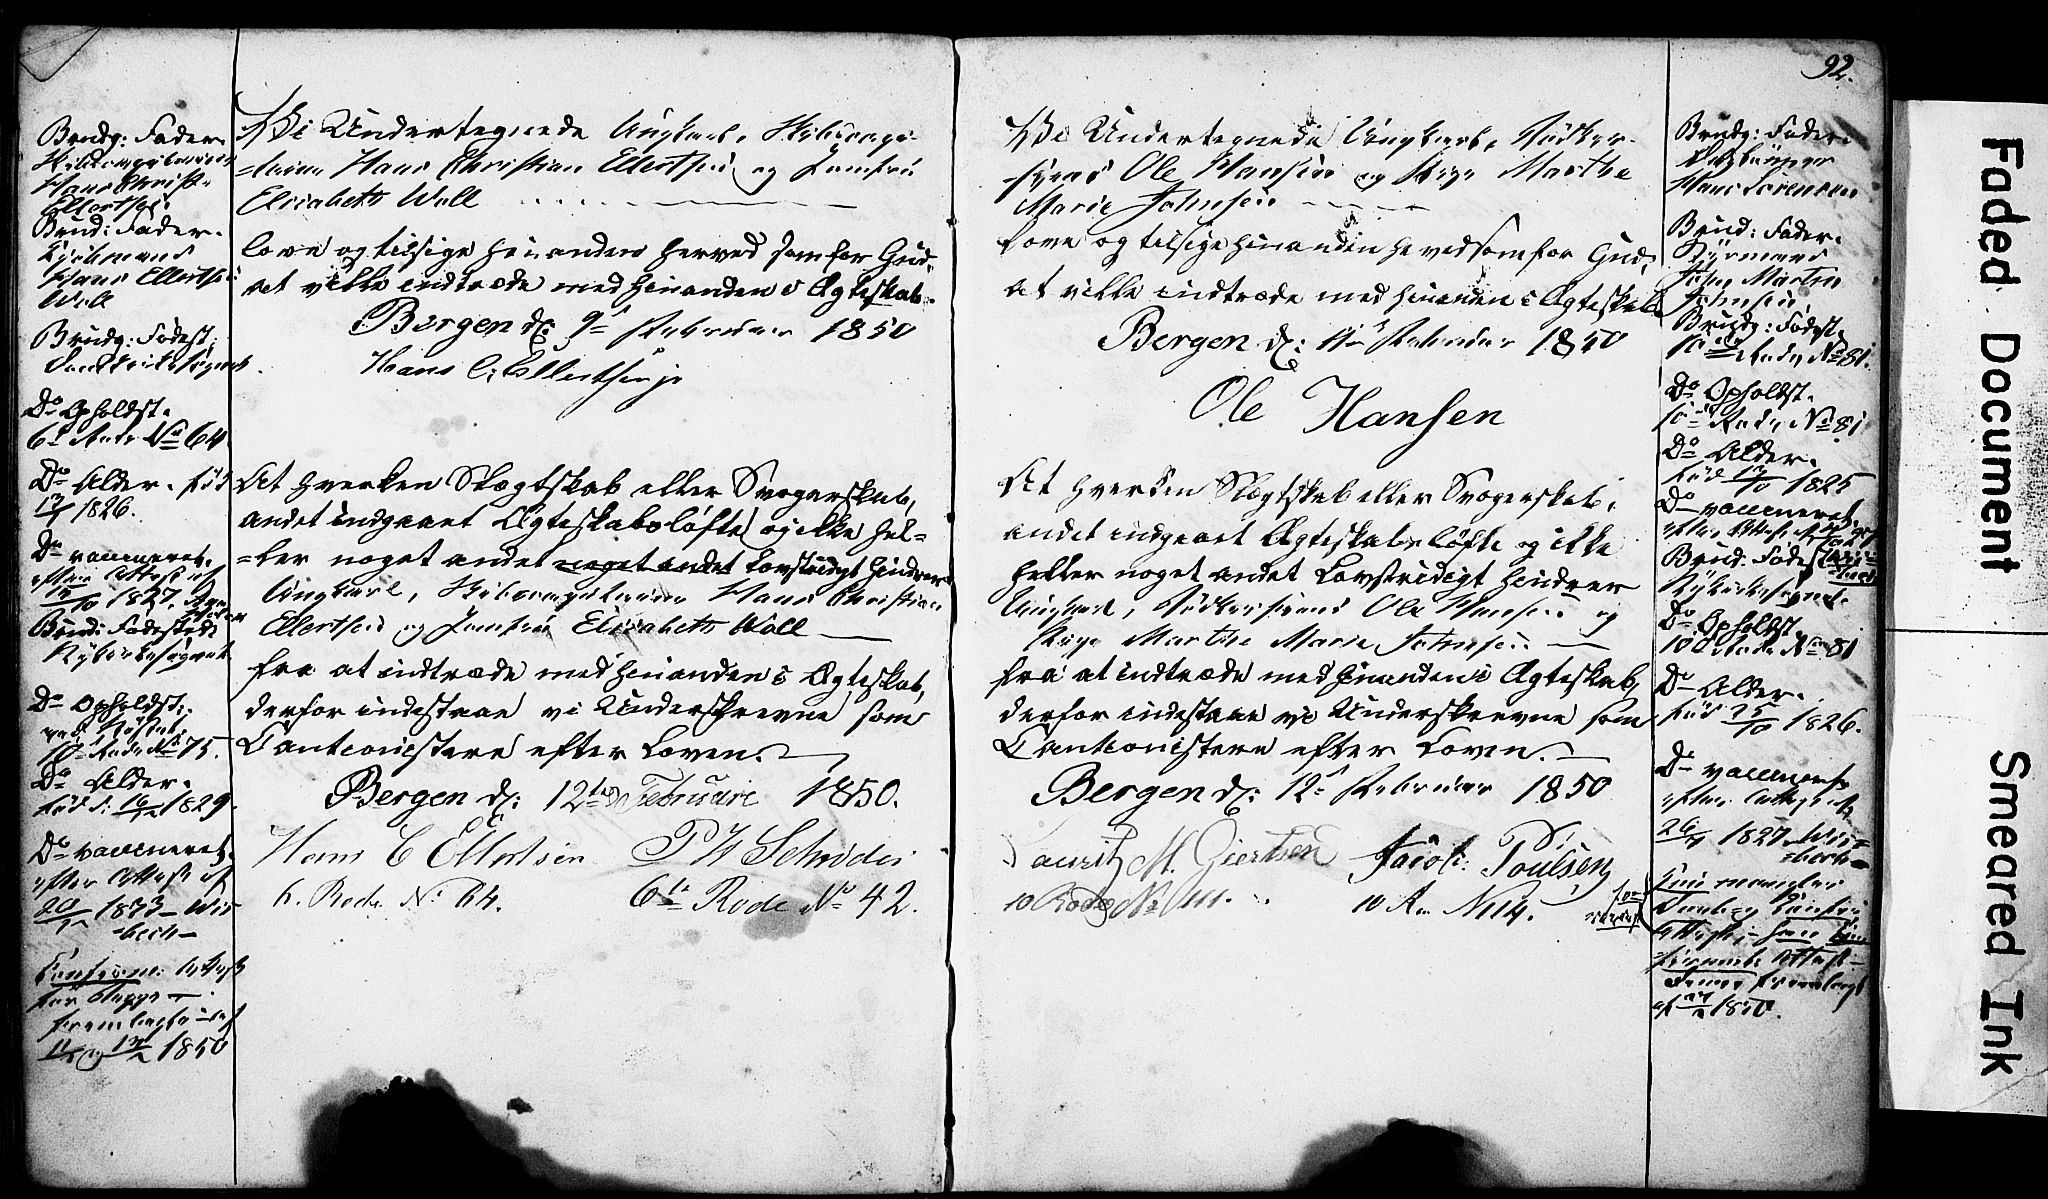 Brudg: Fader.
Hans Christ.
Ellertsen
Brud: Fader.
Hans Ellertsen
Wall
Brudg: Fødest.
Do Opholdst.
6te Rode No 64
Do Alder. fød
1826.
Do vaccineret.
efter Attest af
1827.
Brud: Fødested
Nykirkesognet
Do Opholdst.
Rode No 75.
Do Alder.
født 1829
Do vaccineret.
efter Attest af
20 1833
Confirm: Attest
for begge
fremlagte af
og 1850
Vi Undertegnede Ungkarl, Skibscapi-
-taine Hans Christian Ellertsen og Jomfru
Elisabeth Wall
love og tilsige hinanden herved som for Gud,
at ville indtræde med hinanden i Ægteskab.
Bergen d: 9de Februar 1850
Hans C. Ellertsen jr
At hverken Slægtskab eller Svogerskab,
andet indgaaet Ægteskabsløfte og ikke hel-
-ler noget andet noget andet Lovstridigt hindrer
Ungkarl, Skibscapitaine Hans Christian
Ellertsen og Jomfru Elisabeth Wall
fra at indtræde med hinanden i Ægteskab,
derfor indestaae vi Underskrevne som
Cautionister efter Loven.
Bergen d: 12te Februari 1850.
Hans C Ellertsen P W Schrøder
6. Rode No 64. 6te Rode No 42.
92.
Vi Undertegnede Ungkarl, Bødker-
svend Ole Hansen og Pige Marthe
Marie Johnsen
love og tilsige hinanden herved som for Gud,
at ville indtræde med hinanden i Ægteskab
Bergen d: 11te Februar 1850
Ole Hansen
At hverken Slægtskab eller Svogerskab,
andet indgaaet Ægteskabsløfte og ikke
heller noget andet Lovstridigt hindrer
Ungkarl, Bødkersvend Ole Hansen og
Pige Marthe Marie Johnsen
fra at indtræde med hinanden i Ægteskab,
derfor indestaae vi Underskrevne som
Cautionister efter Loven.
Bergen d: 12te Februar 1850
Lauritz M. Giertsen Jacob Poulsen
10 Rode No 10 R No 114.
Brudg: Fader.
Hans Sørensen
Brud: Fader.
John Martin
Johnsen
Brudg: Fødest.
10de Rode No 81.
Do Opholdst.
10de Rode No 81
Do Alder.
Fød 1825
Do vaccineret.
Brud. Fødest
Nykirkesognet.
Do Opholdst
10de Rode No 81
Do Alder.
Fød 25/10 1826.
Do vaccineret
efter Attest af
26 1827
mangler
af 1850.
Faded Document
Smeared Ink